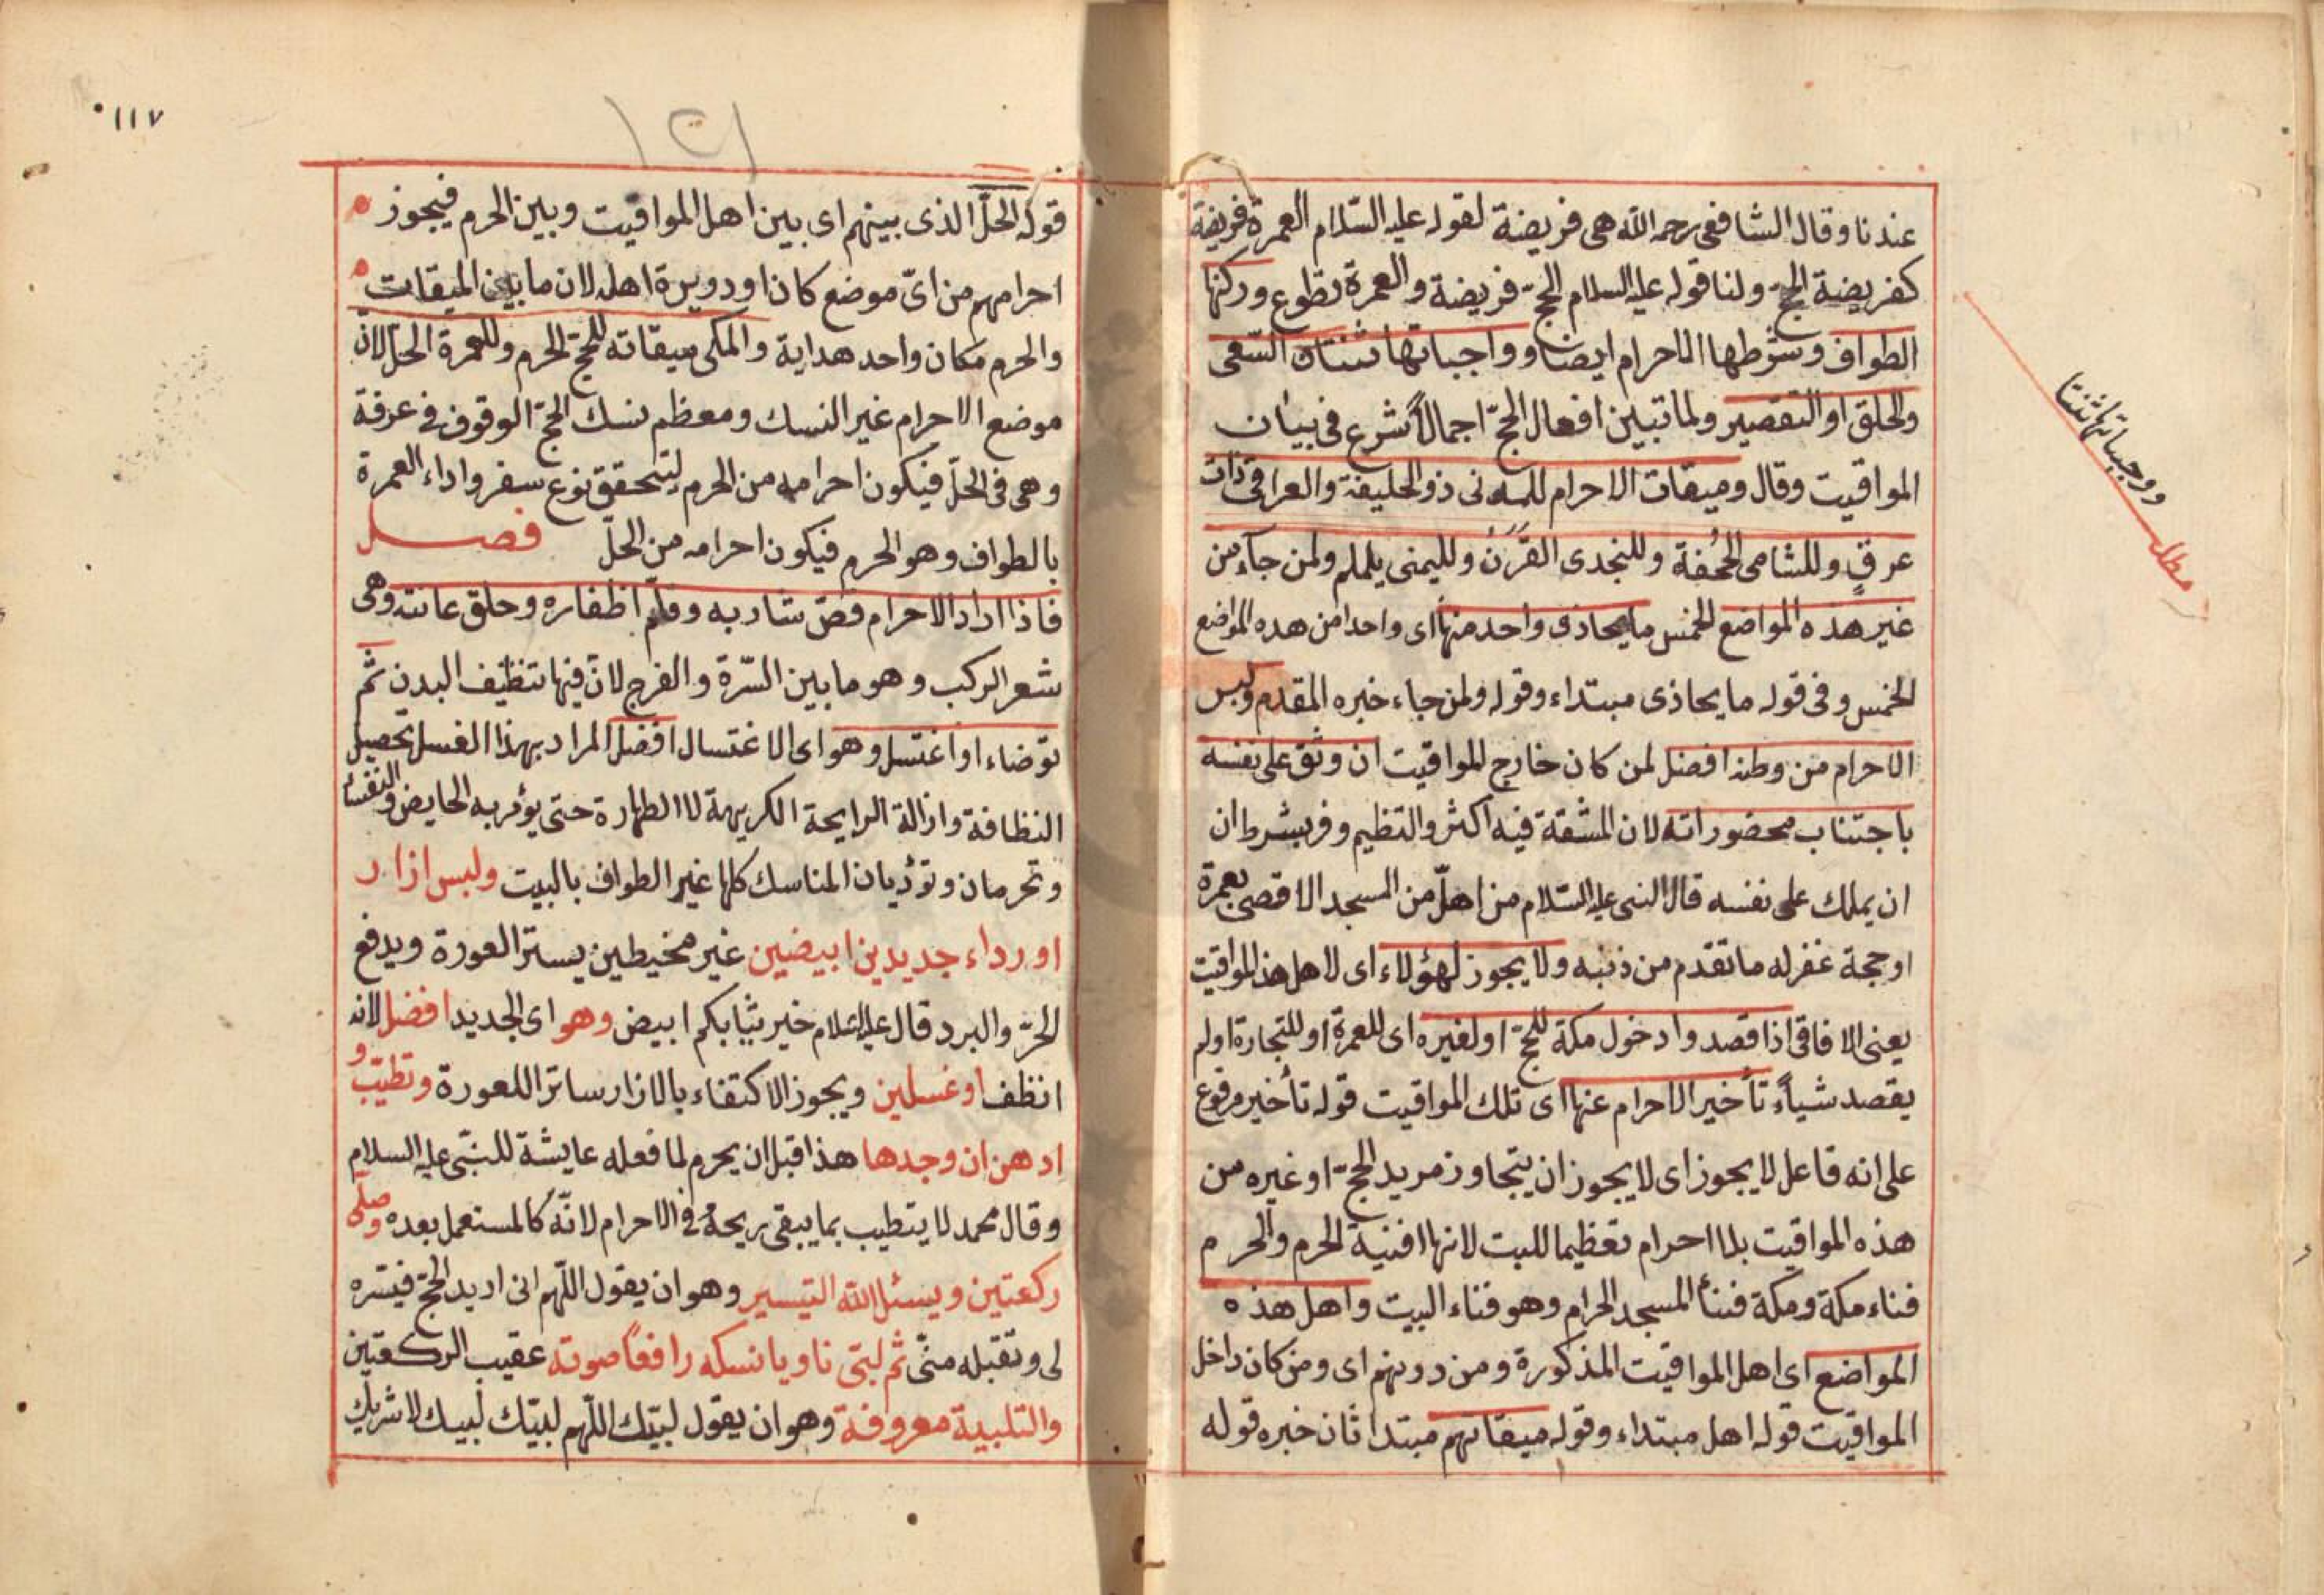 عندنا وقال الشافعى رحمه الله هى فريضة لقوله عليه السّلام العمرة فريضة
كفريضة الحجّ ولنا قوله عليه السلام الحجّ فريضة والعمرة تطوع وركنها
الطواف وشرطها الاحرام ايضا وواجباتها ثنتان السّعى
والحلق او التقصير ولما تبين افعال الحجّ اجمالاً شرع فى بيان
المواقيت وقال وميقات الاحرام للمدنى ذو الحليفة والعراقى ذات
عرقٍ وللشامى الجُحفة وللنجدى القَرَن ولليمنى يلملم ولمن جآء من
غير هذه المواضع الخمس ما يحاذى واحد منها اى واحدا من هده المواضع
الخمس وفى قوله ما يحاذى مبتداء وقوله ولمن جاء خبره المقدم ولبس
الاحرام من وطنه افضل لمن كان خارج المواقيت ان وثق على نفسه
باجتناب محضوراته لان المشقة فيه اكثر والتظيم وفر بشرط ان
ان يملك على نفسه قال النبى عليه السّلام من اهلّ من المسجد الاقصى بعمرة
او حجة غفر له ما تقدم من ذنبه ولا يجوز لهؤلاء اى لاهل هذ المواقيت
يعنى الافاقى اذا قصدوا دخول مكة للحجّ او لغيره اى للعمرة او للتجارة او لم
يقصد شيأً تأخير الاحرام عنها اى تلك المواقيت قوله تأخير مرفوع
على انه فاعل لا يجوز اى لا يجوز ان يتجاوز مريد الحجّ او غيره من
هذه المواقيت بلا احرام تعظيما للبيت لانها افنية الحرم والحرم
فناء مكة ومكة فنأ المسجد الحرام وهو فناء البيت واهل هذه
المواضع اى اهل المواقيت المذكورة ومن دونهم اى ومن كان داخل
المواقيت قوله اهل مبتداء وقوله ميقاتهم مبتدا ثان خبره قوله
ووجباتها ثنتا
مطلب
١١٧
١٢١
قوله الحلّ الذى بينهم اى بين اهل المواقيت وبين الحرم فيجوز
احرامهم من اىّ موضع كان او دويرة اهله لان ما بين الميقات
والحرم مكان واحد هداية والمكى ميقاته للحجّ الحرم وللعمرة الحلّ لانّ
موضع الاحرام غير النسك ومعظم نسك الحجّ الوقوف فى عرفة
وهى فى الحلّ فيكون احرامه من الحرم ليتحقق نوع سفر واداء العمرة
بالطواف وهو الحرم فيكون احرامه من الحلّ فصل
فاذا اراد الاحرام قصّ شاربه وقلّم اظفاره وحلق عانته وهى
شعر الركب وهو ما بين السّرة والفرج لانّ فيها تنظيف البدن ثمّ
توضاء او اغتسل وهو اى الاغتسال افضل المراد بهذا الغسل تحصيل
النظافة وازالة الرايحة الكريهة لا الطهارة حتى يؤمر به الحايض والنفساء
وتحرمان وتؤديان المناسك كلها غير الطواف بالبيت ولبس ازار
او رداء جديدين ابيضين غير مخيطين يستر العورة ويدفع
الحرّ والبرد قال عليه السّلام خير ثيابكم ابيض وهو اى الجديد افضل لانه
انظف او غسلين ويجوز الاكتفاء بالازار ساترا للعورة وتطيّب و
ادهن ان وجدها هذا قبل ان يحرم لما فعله عايشة للنبّى عليه السلام
وقال محمد لا يتطيب بما يبقى ريحهُ فى الاحرام لانّه كالمستعمل بعده وصلّى
ركعتين ويسئل الله التيسير وهو ان يقول اللّهم انى اريد الحجّ فيسّره
لى وتقبله منّى ثم لبّى ناويا نسكه رافعاً صوته عقيب الركعتين
والتلبية معروفة وهو ان يقول لبّيك اللّهم لبيّك لبيك لا شريك